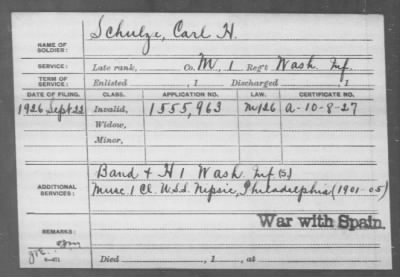 NAME OF SOLDIER: Schulze, Carl H.
SERVICE: Late rank, Co. M, 1 Reg't Wash. Inf.
TERM OF SERVICE: Enlisted , 1 Discharged , 1
DATE OF FILING. CLASS. APPLICATION NO. LAW. CERTIFICATE NO.
1926 Sept 22 Invalid, 1555,963 A-10-8-27
Widow,
Minor,
ADDITIONAL SERVICES: Band & H 1 Wash. Inf (S)
Musc. 1 Cl. U.S.S. Nipsic, Philadelphia (1901-05)
War with Spain.
REMARKS:
Died , 1 , at